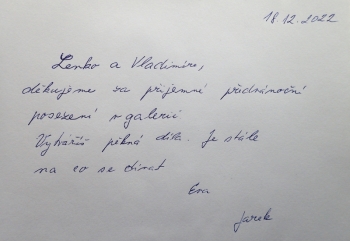 18.12.2022
Lenko a Vladimíre,
děkujeme za příjemné předvánoční
posezení v galerii
Vytváříš pěkná díla. Je stále
na co se dívat
Eva
Jarek